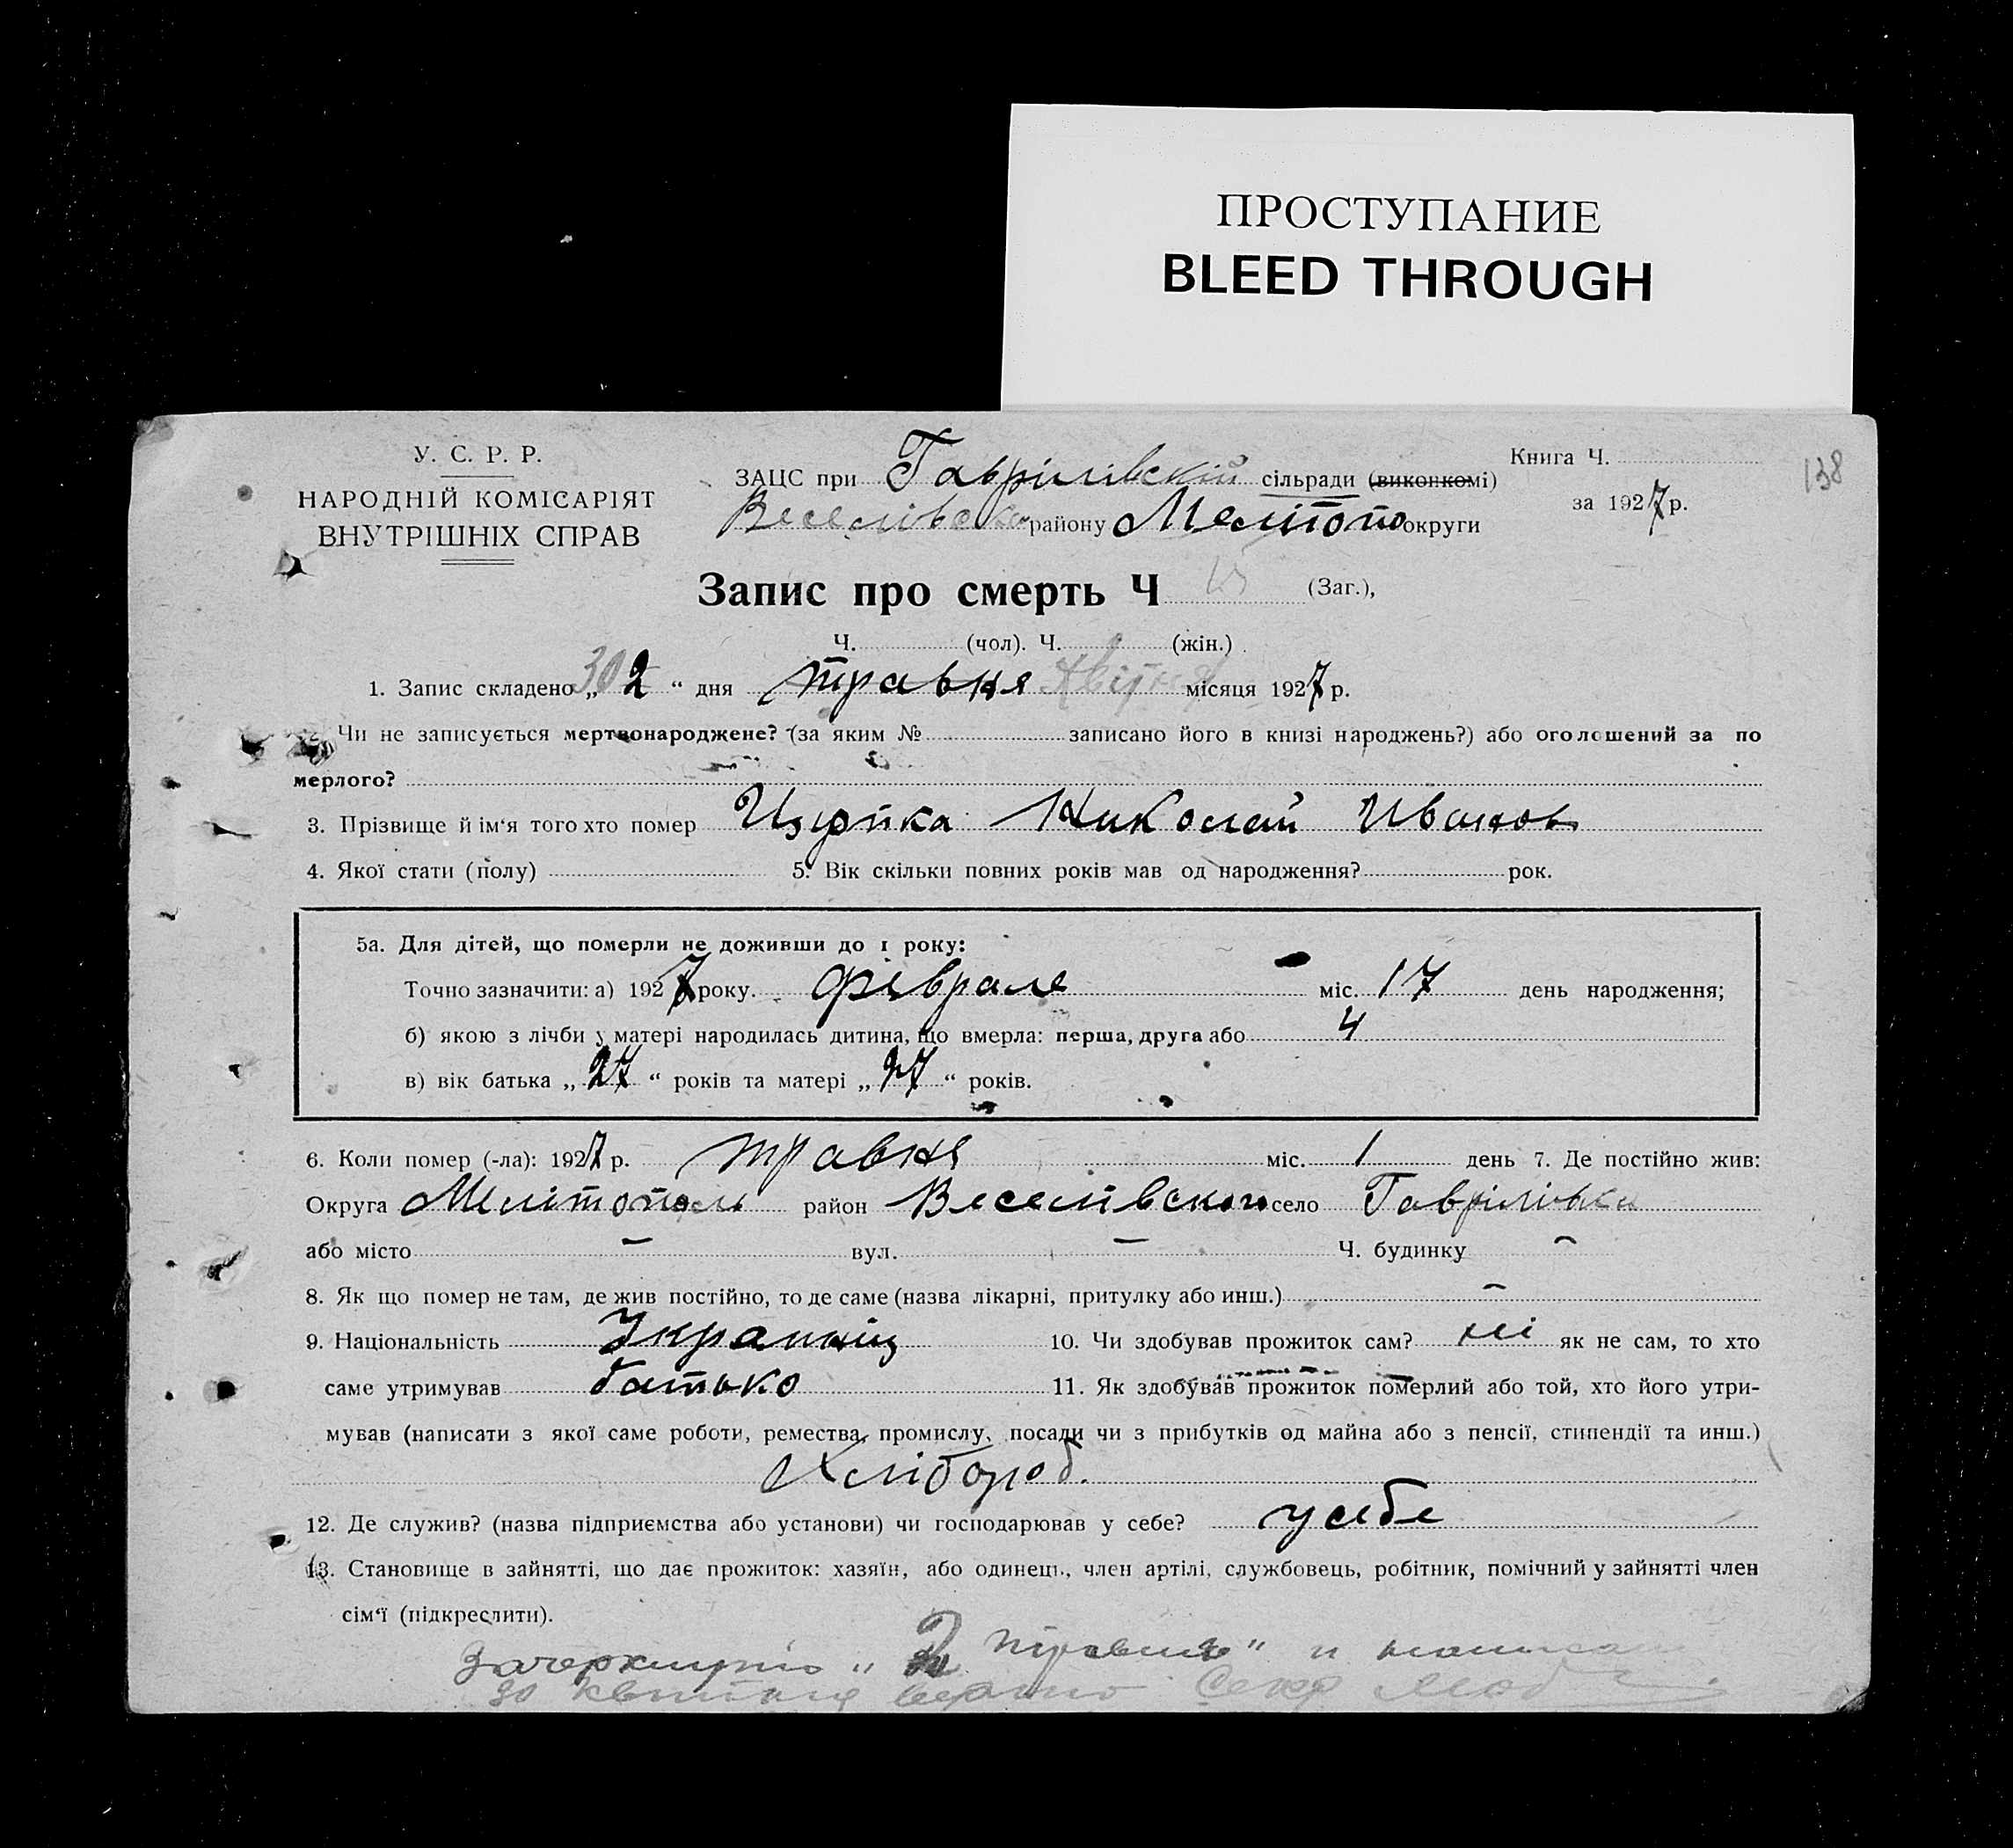 ПРОСТУПАНИЕ
BLEED THROUGH
У. С. Р. Р.
НАРОДНІЙ КОМІСАРІЯТ
ВНУТРІШНІХ СПРАВ
ЗАЦС при Гаврілівскій сільради (виконкомі)
Веселівсько району Меліто округи
Книга Ч.
за 1927 р.
138
Запис про смерть Ч (Заг.),
Ч. (чол). Ч. (жін.)
1. Запис складено „ 30 2 “ дня травня квітня місяця 1927 р.
Чи не записується мертвонароджене? (за яким № записано його в книзі народжень?) або оголошений за по
мерлого?
3. Прізвище й ім‘я того хто помер Николай Іванов
4. Якої стати (полу) 5. Вік скільки повних років мав од народження? рок.
5а. Для дітей, що померли не доживши до 1 року:
Точно зазначити: а) 1927 року. февраля міс. 17 день народження;
б) якою з лічби у матері народилась дитина, що вмерла: перша, друга або 4
в) вік батька „ 27 “ років та матері „ 27 “ років.
6. Коли помер (-ла): 1927 р. травня міс. 1 день 7. Де постійно жив:
Округа Мелітополь район Веселівского село Гаврілівка
або місто – вул. – Ч. будинку –
8. Як що помер не там, де жив постійно, то де саме (назва лікарні, притулку або инш.) –
9. Національність Украініц 10. Чи здобував прожиток сам? ні як не сам, то хто
саме утримував батько 11. Як здобував прожиток померлий або той, хто його утри-
мував (написати з якої саме роботи, ремества, промислу, посади чи з прибутків од майна або з пенсії, стипендії та инш.)
Хлібороб.
12. Де служив? (назва підприємства або установи) чи господарював у себе? у себе
13. Становище в зайнятті, що дає прожиток: хазяїн, або одинець, член артілі, службовець, робітник, помічний у зайнятті член
сім‘ї (підкреслити).
Зачеркнуто „ 2 травня “ и написано
30 квитня верно Секр